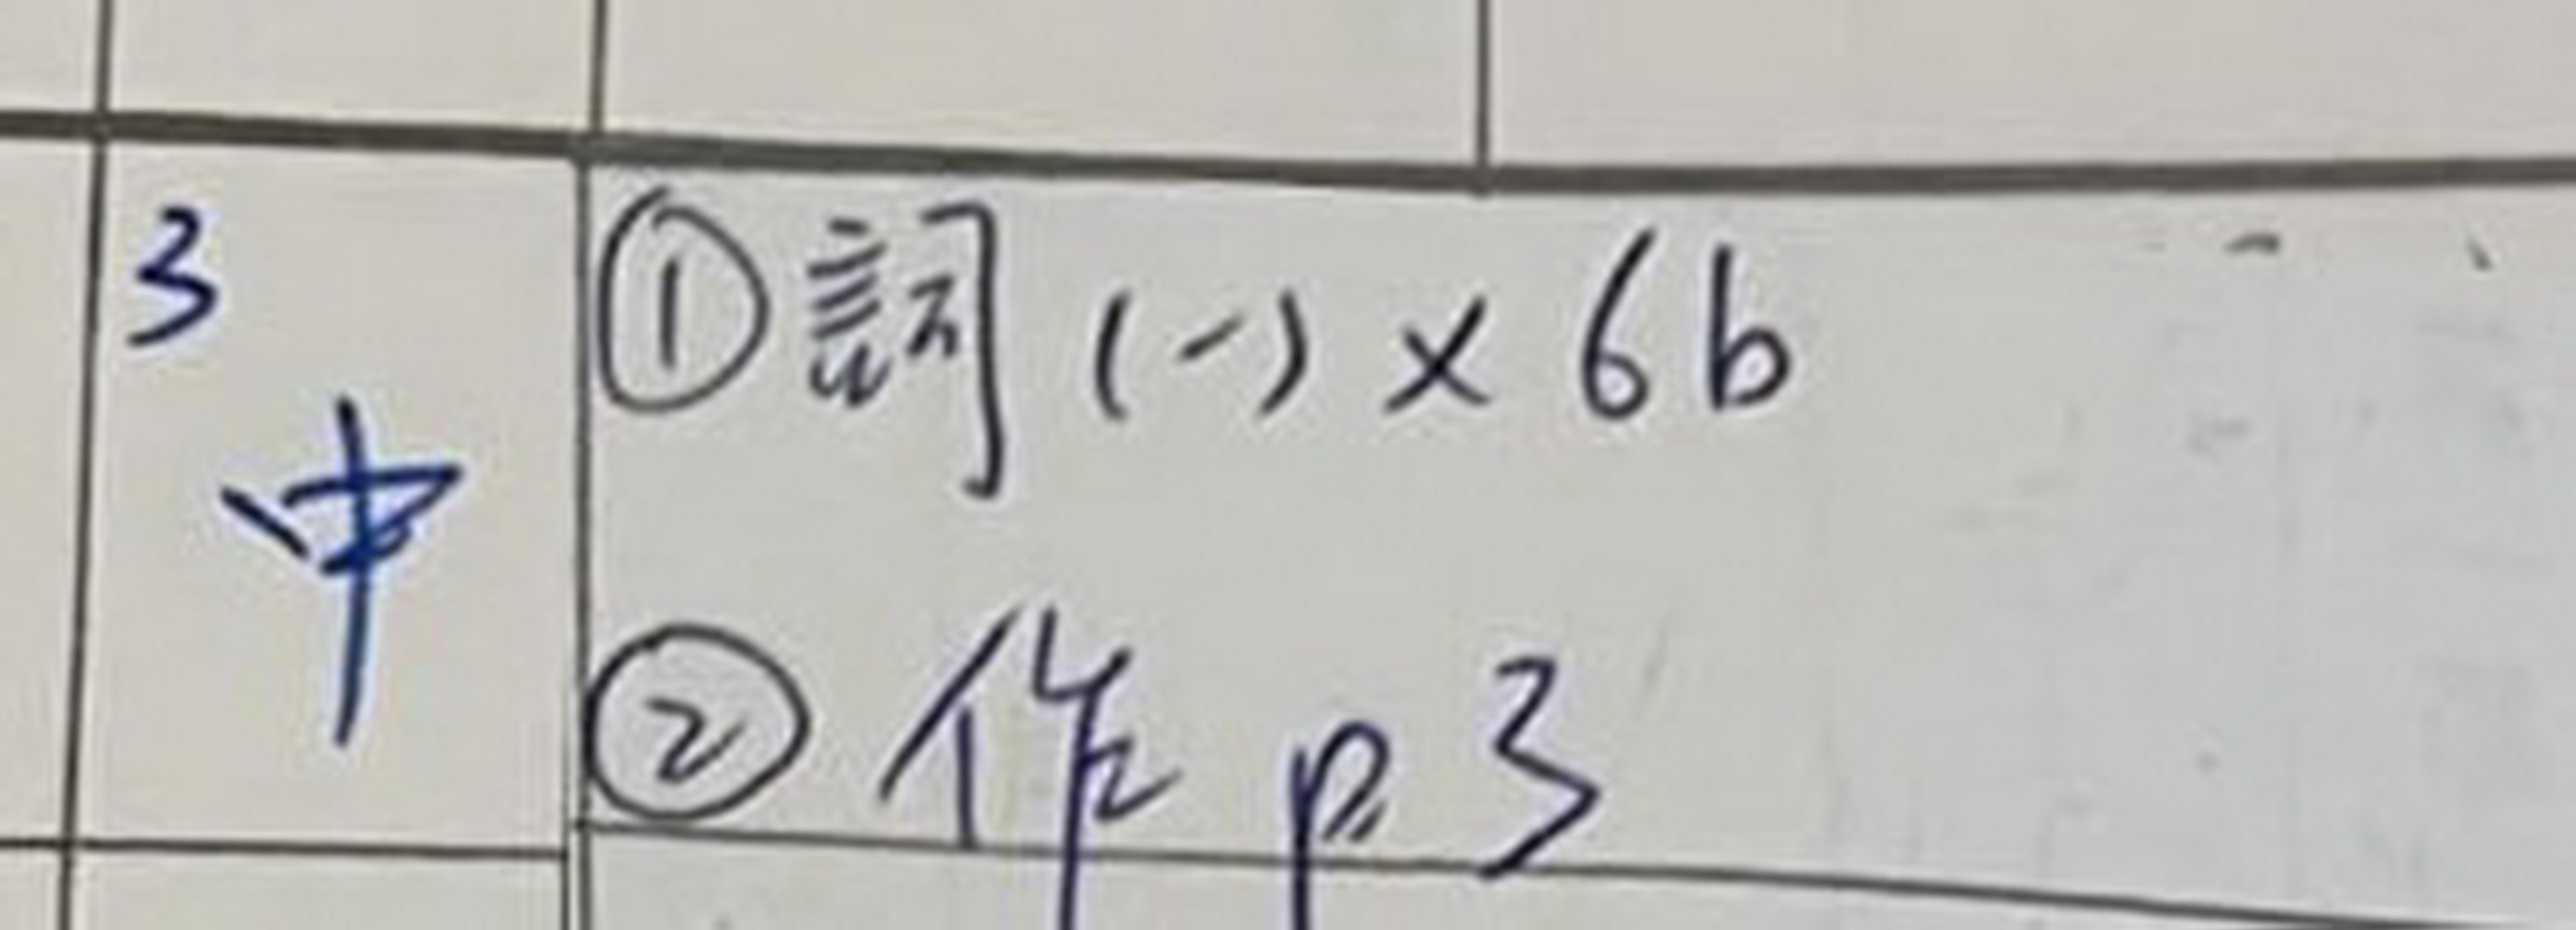 3
中
①詞(一)×6b
②作 p3